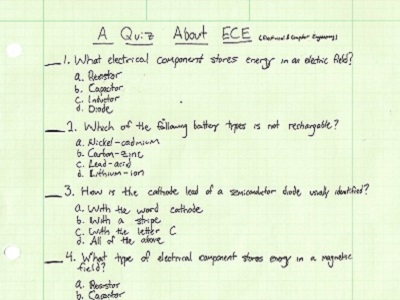 A Quiz About ECE (Electrical & Computer Engineering)
1. What electrical component stores energy in an electric field?
a. Resistor
b. Capacitor
c. Inductor
d. Diode
2. Which of the following battery types is not rechargable?
a. Nickel-cadmium
b. Carbon-zinc
c. Lead-acid
d. Lithium-ion
3. How is the cathode lead of a semiconductor diode usually identified?
a. With the word cathode
b. With a stripe
c. With the letter C
d. All of the above
4. What type of electrical component stores energy in a magnetic
field?
a. Resistor
b. Capacitor